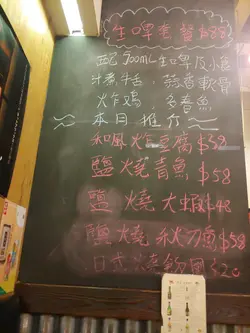 生啤套餐$88
配700mL生啤及小食
汁煮牛舌、蒜香軟骨
火炸鸡、多春魚
本日推介
和風炸豆腐$38
鹽燒青魚$58
鹽燒大蝦$48
鹽燒秋刀魚$58
日式燒飯團$20